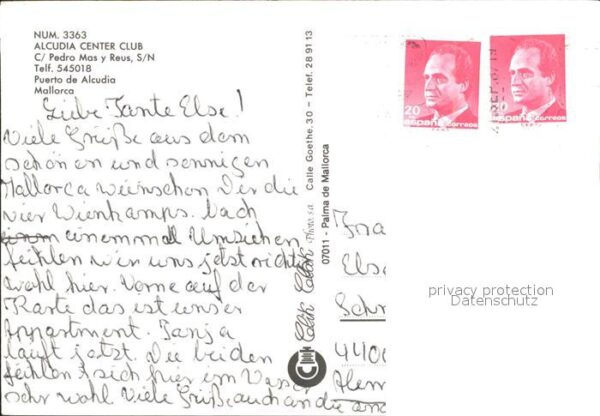 NUM. 3363
ALCUDIA CENTER CLUB
C/ Pedro Mas y Reus, S/N
Telf. 545018
Puerto de Alcudia
Mallorca
Liebe Tante Else!
Viele Grüße aus dem
schönen und sonnigen
Mallorca wünschen Dir die
vier Wienkamps. Nach
einem einemmal Umziehen
fühlen wir uns jetzt richtig
wohl hier. Vorne auf der
Karte das ist unser
Appartment. Tanja
läuft jetzt. Die beiden
fühlen sich hier im Wasser
sehr wohl Viele Grüße auch an die and
Click Click Photo s.a. Calle Goethe, 30 – Telef. 28 91 13
07011 - Palma de Mallorca
20
españa correos
20
españa correos
Frau
Else
Schr
4400
privacy protection
Datenschutz